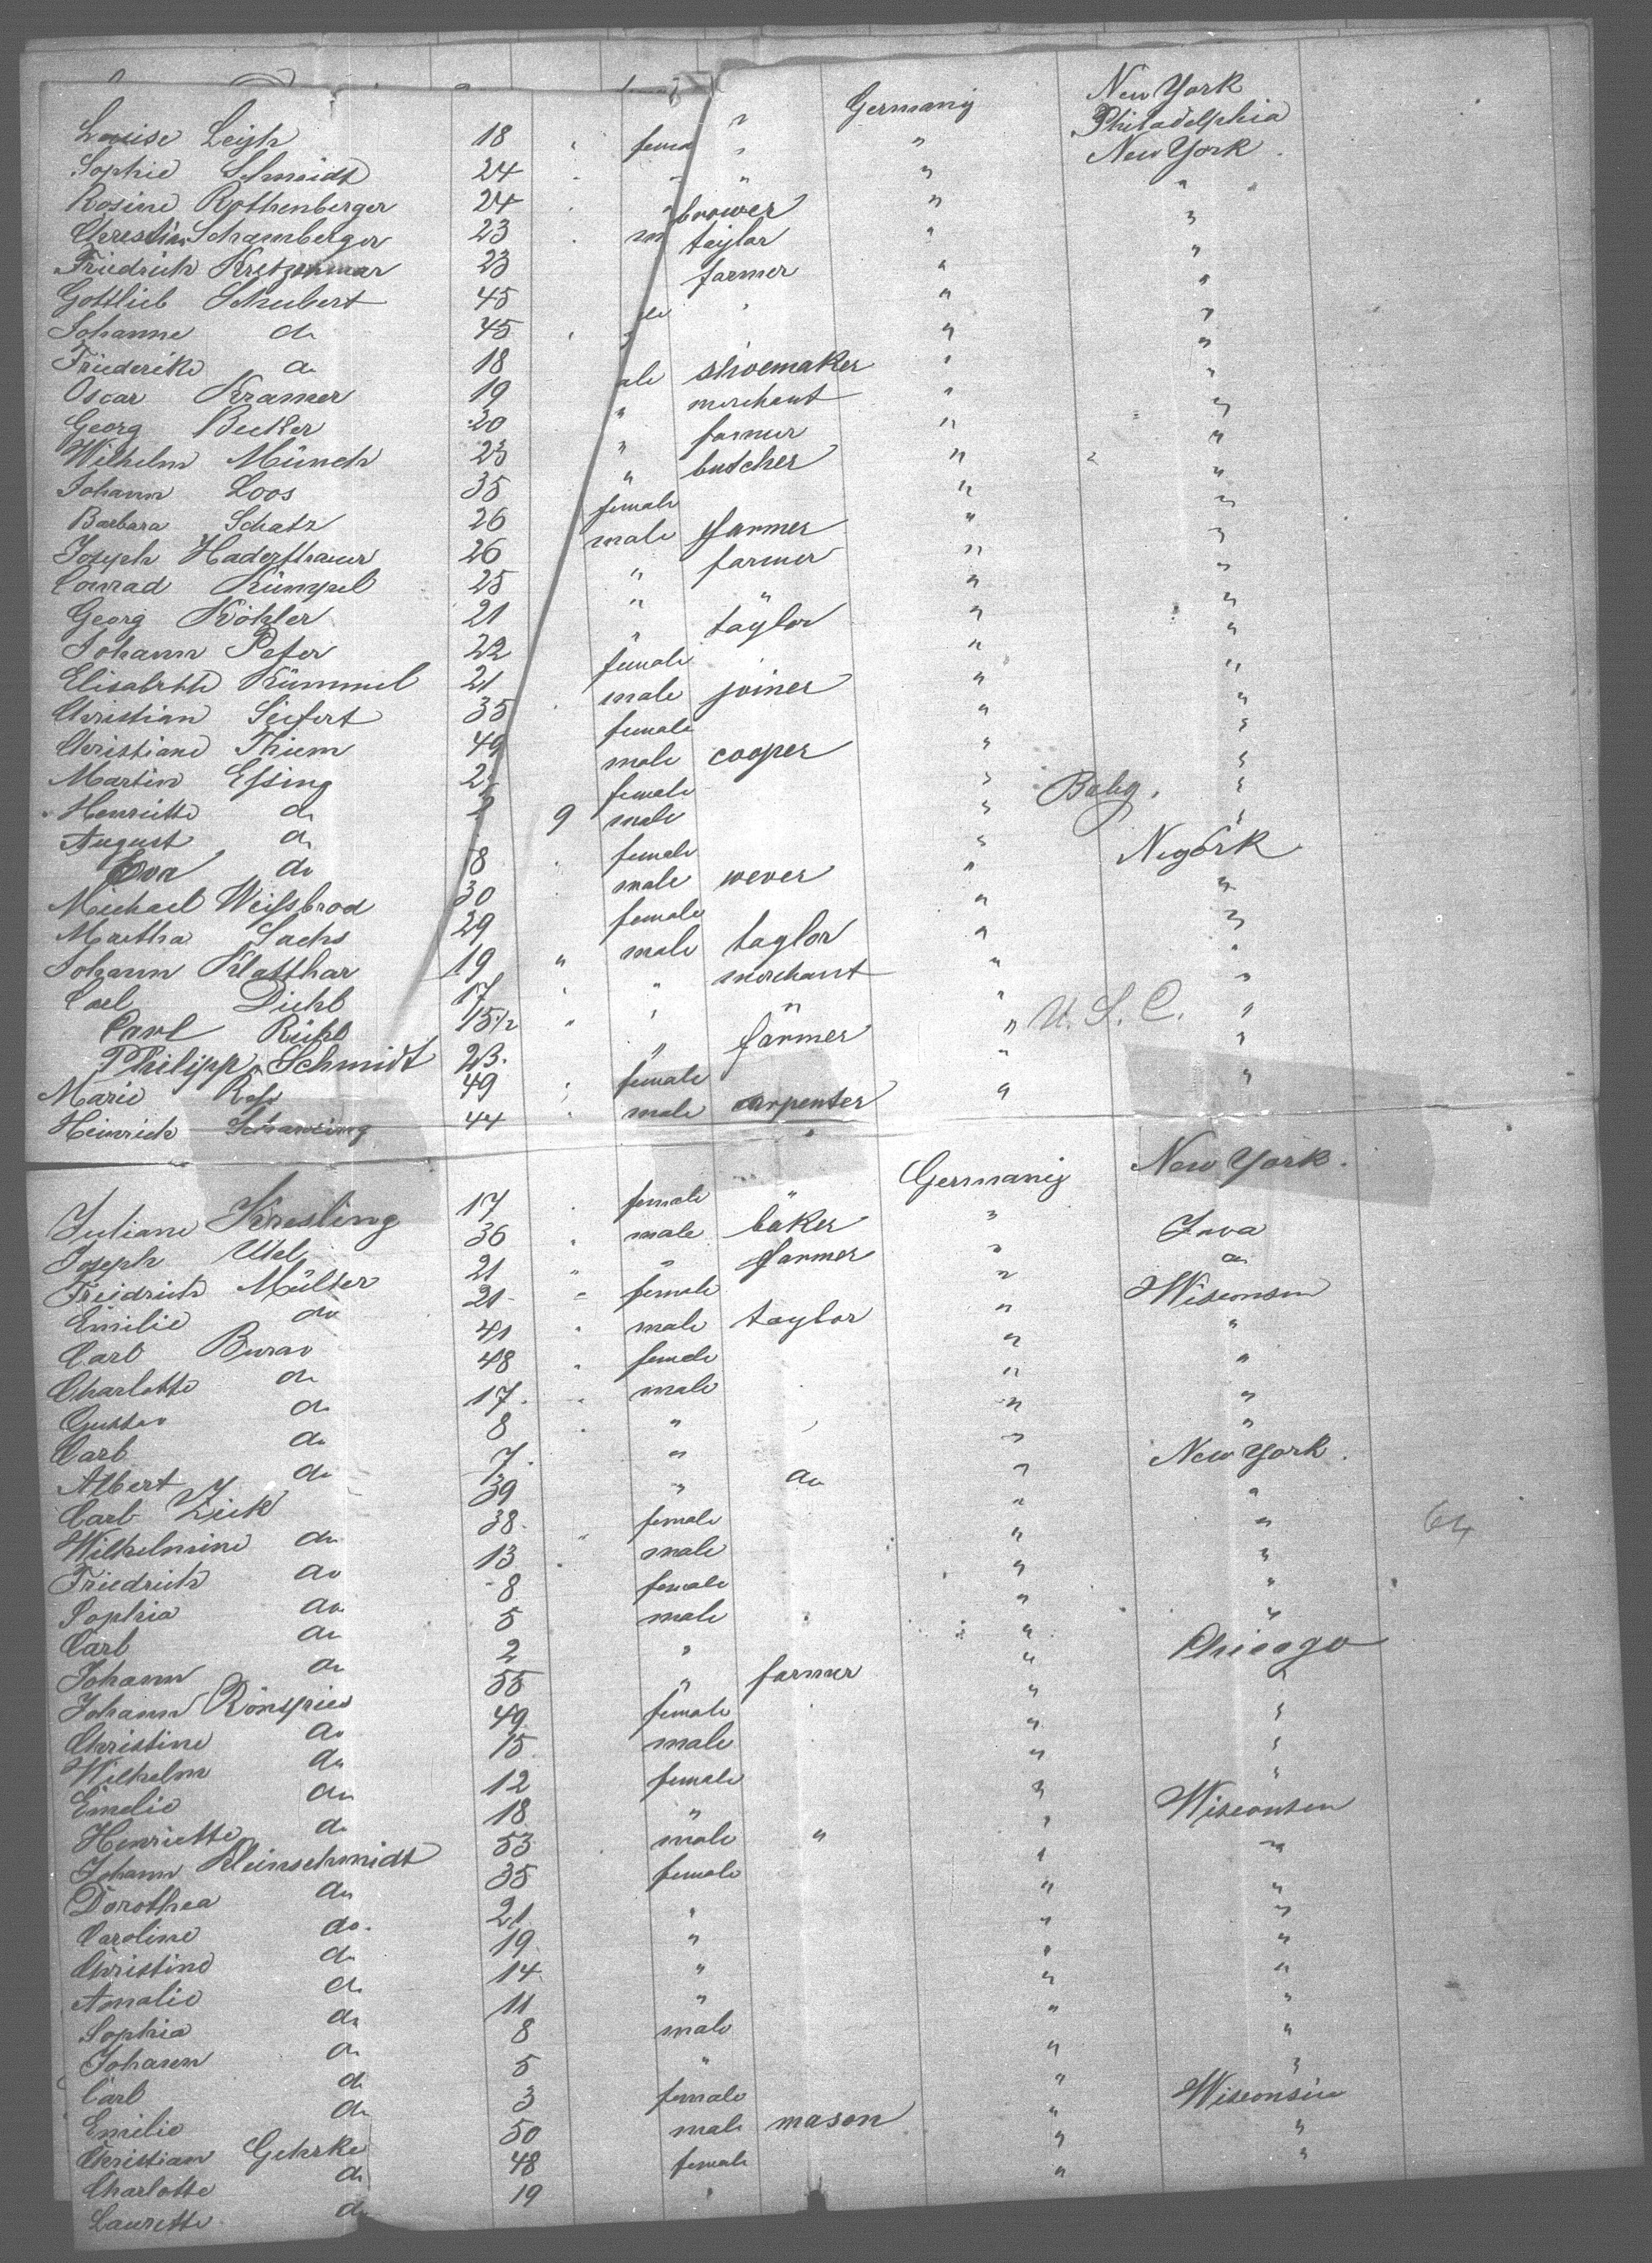 Louise Leish 18 " fema " Germany New York
Sophie Schmidt 24 " " " " Philadelphia
Rosine Rothenberger 24 " " " " New York
Christian Schamberger 23 " m brower " "
Friedrich Kretzenmar 23 taylor " "
Gottlieb Schubert 45 farmer " "
Johanne do 45 " " "
Friederike do 18 " "
Oscar Kramer 19 ale shoemaker " "
Georg Becker 20 " merchant " "
Wilhelm Münch 23 " farmer " "
Johann Loos 35 " butcher " "
Barbara Schatz 26 female " "
Joseph Haderthauer 26 male farmer " "
Conrad Kümpel 25 " farmer " "
Georg Köhler 21 " " " "
Johann Peter 22 " taylor " "
Elisabethe Kümmel 21 female " "
Christian Seifert 35 male joiner " "
Christiane Thiem 49 female " "
Martin Essing 2 male cooper " "
Henriette do female " "
August do 9 male " Baby. "
Eva do 8 female " "
Michael Weissbrod 30 male wever " Nyork
Martha Sachs 29 female " "
Johann Klatthar 19 " male taylor " "
Carl Diehl 17 " " merchant " "
Carl Rühl 15 1/2 " " " " U. S. C. "
Philipp Schmidt 23. " farmer " "
Marie Ross 49 " female " "
Heinrich Schansing 44 " male carpenter " "
Juliane Kresling 17 " female " Germany New York.
Joseph Utel 36 " male baker " Iova
Freidrich Müller 21 " " farmer " do
Emilie do 21 " female " Wisconsin
Carl Burow 41 " male taylor " "
Charlotte do 48 " female " "
Gustav do 17. " male " "
Carl do 8 " " " "
Albert do 7. " " "
Carl Zick 39 " do " New York.
Wilhelmine do 38. " female " "
Friedrich do 13 " male " "
Sophia do 8 female " "
Carl do 5 male " "
Johann do 2 " " "
Johann Rönspies 55 " farmer " Chicago
Christine do 49 female " "
Wilhelm do 15 male " "
Emelie do 12 female " "
Henriette do 18 " " "
Johann Kleinschmidt 53 male " " Wisconsen
Dorothea do 35 female " "
Caroline do. 21 " " "
Christine do 19 " " "
Amalie do 14 " " "
Sophia do 11 " " "
Johann do 8 male " "
Carl do 5 " " "
Emilie do 3 female " "
Christian Gehrke 50 male mason " Wisconsin
Charlotte do 48 female " "
Laurette do 19 " " "
64